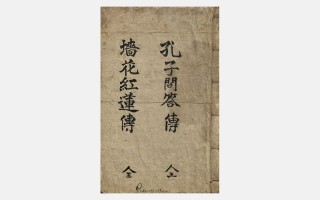 孔子問答傳
墻花紅蓮傳
全